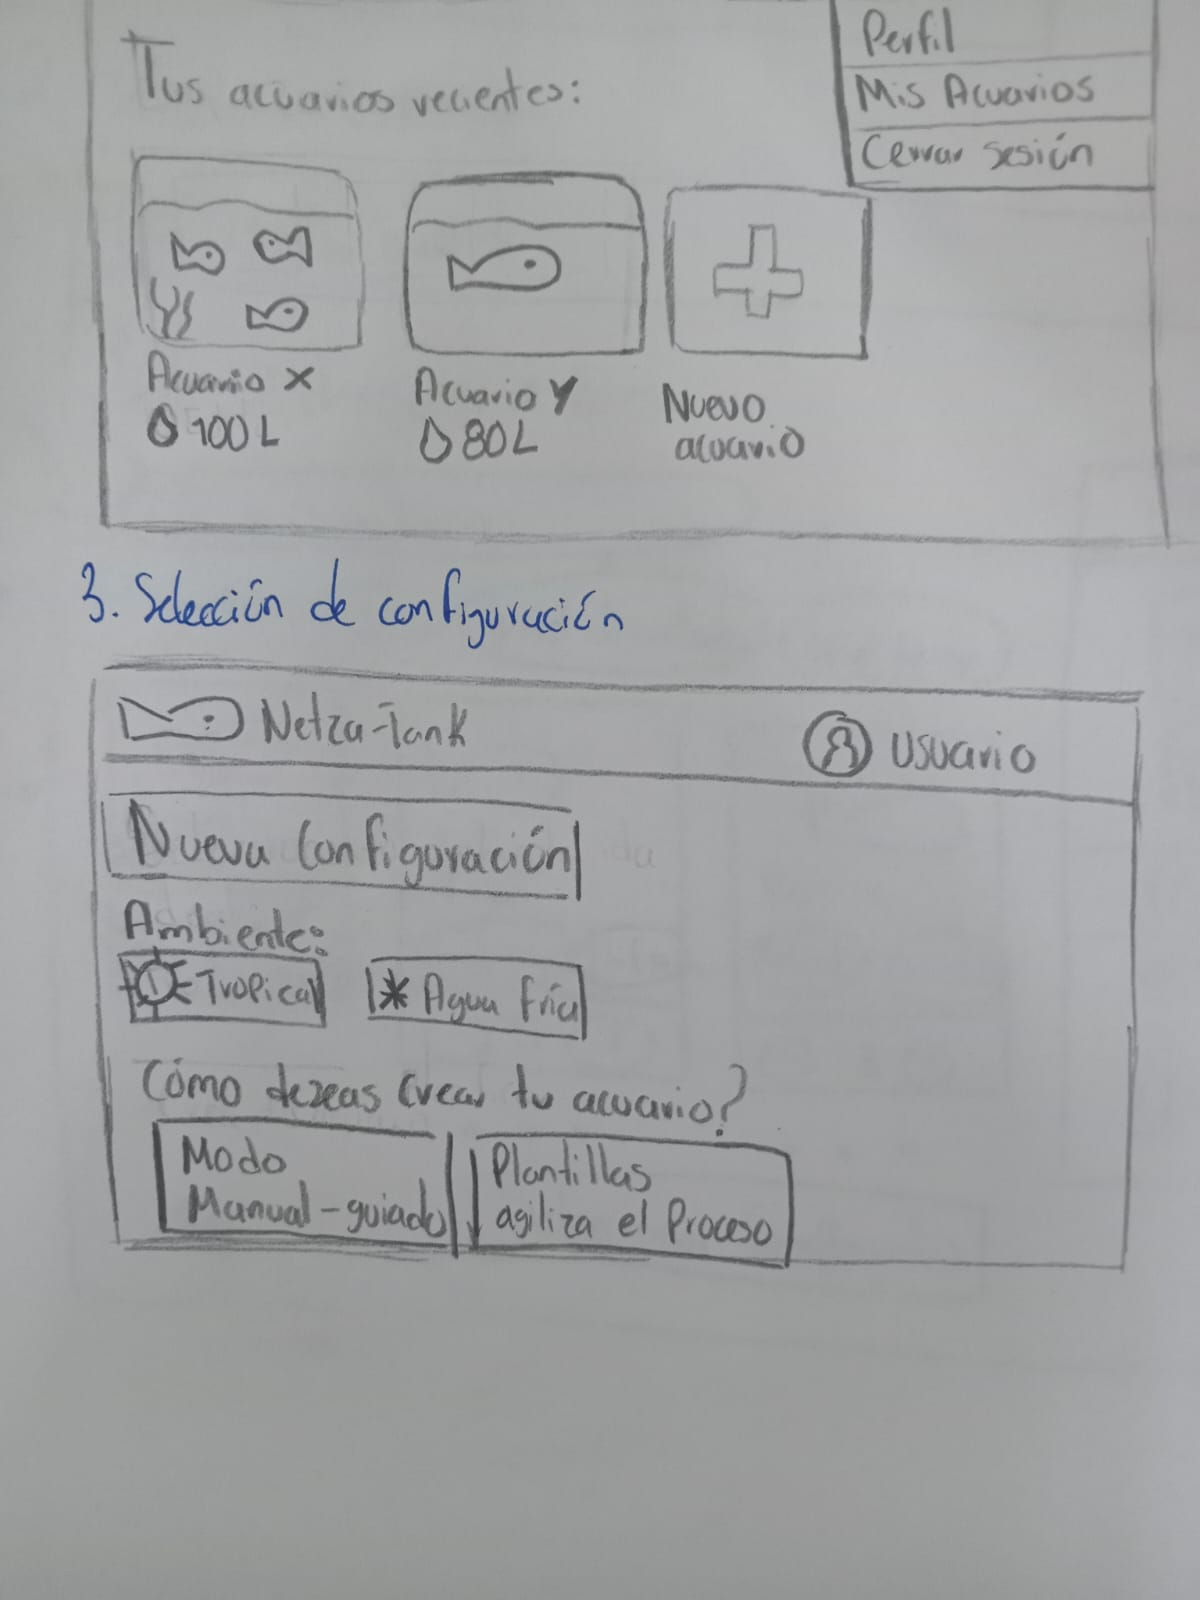 Perfil
Mis Acuarios
Cerrar sesión
Tus acuarios recientes:
Acuario X
100L
Acuario Y
80L
Nuevo
acuario
3. Selección de configuración
Netza-Tank
Usuario
Nueva Configuración
Ambiente:
Tropical
Agua Fría
Cómo dezeas crear tu acuario?
Modo
Manual-guiado
Plantillas
agiliza el Proceso